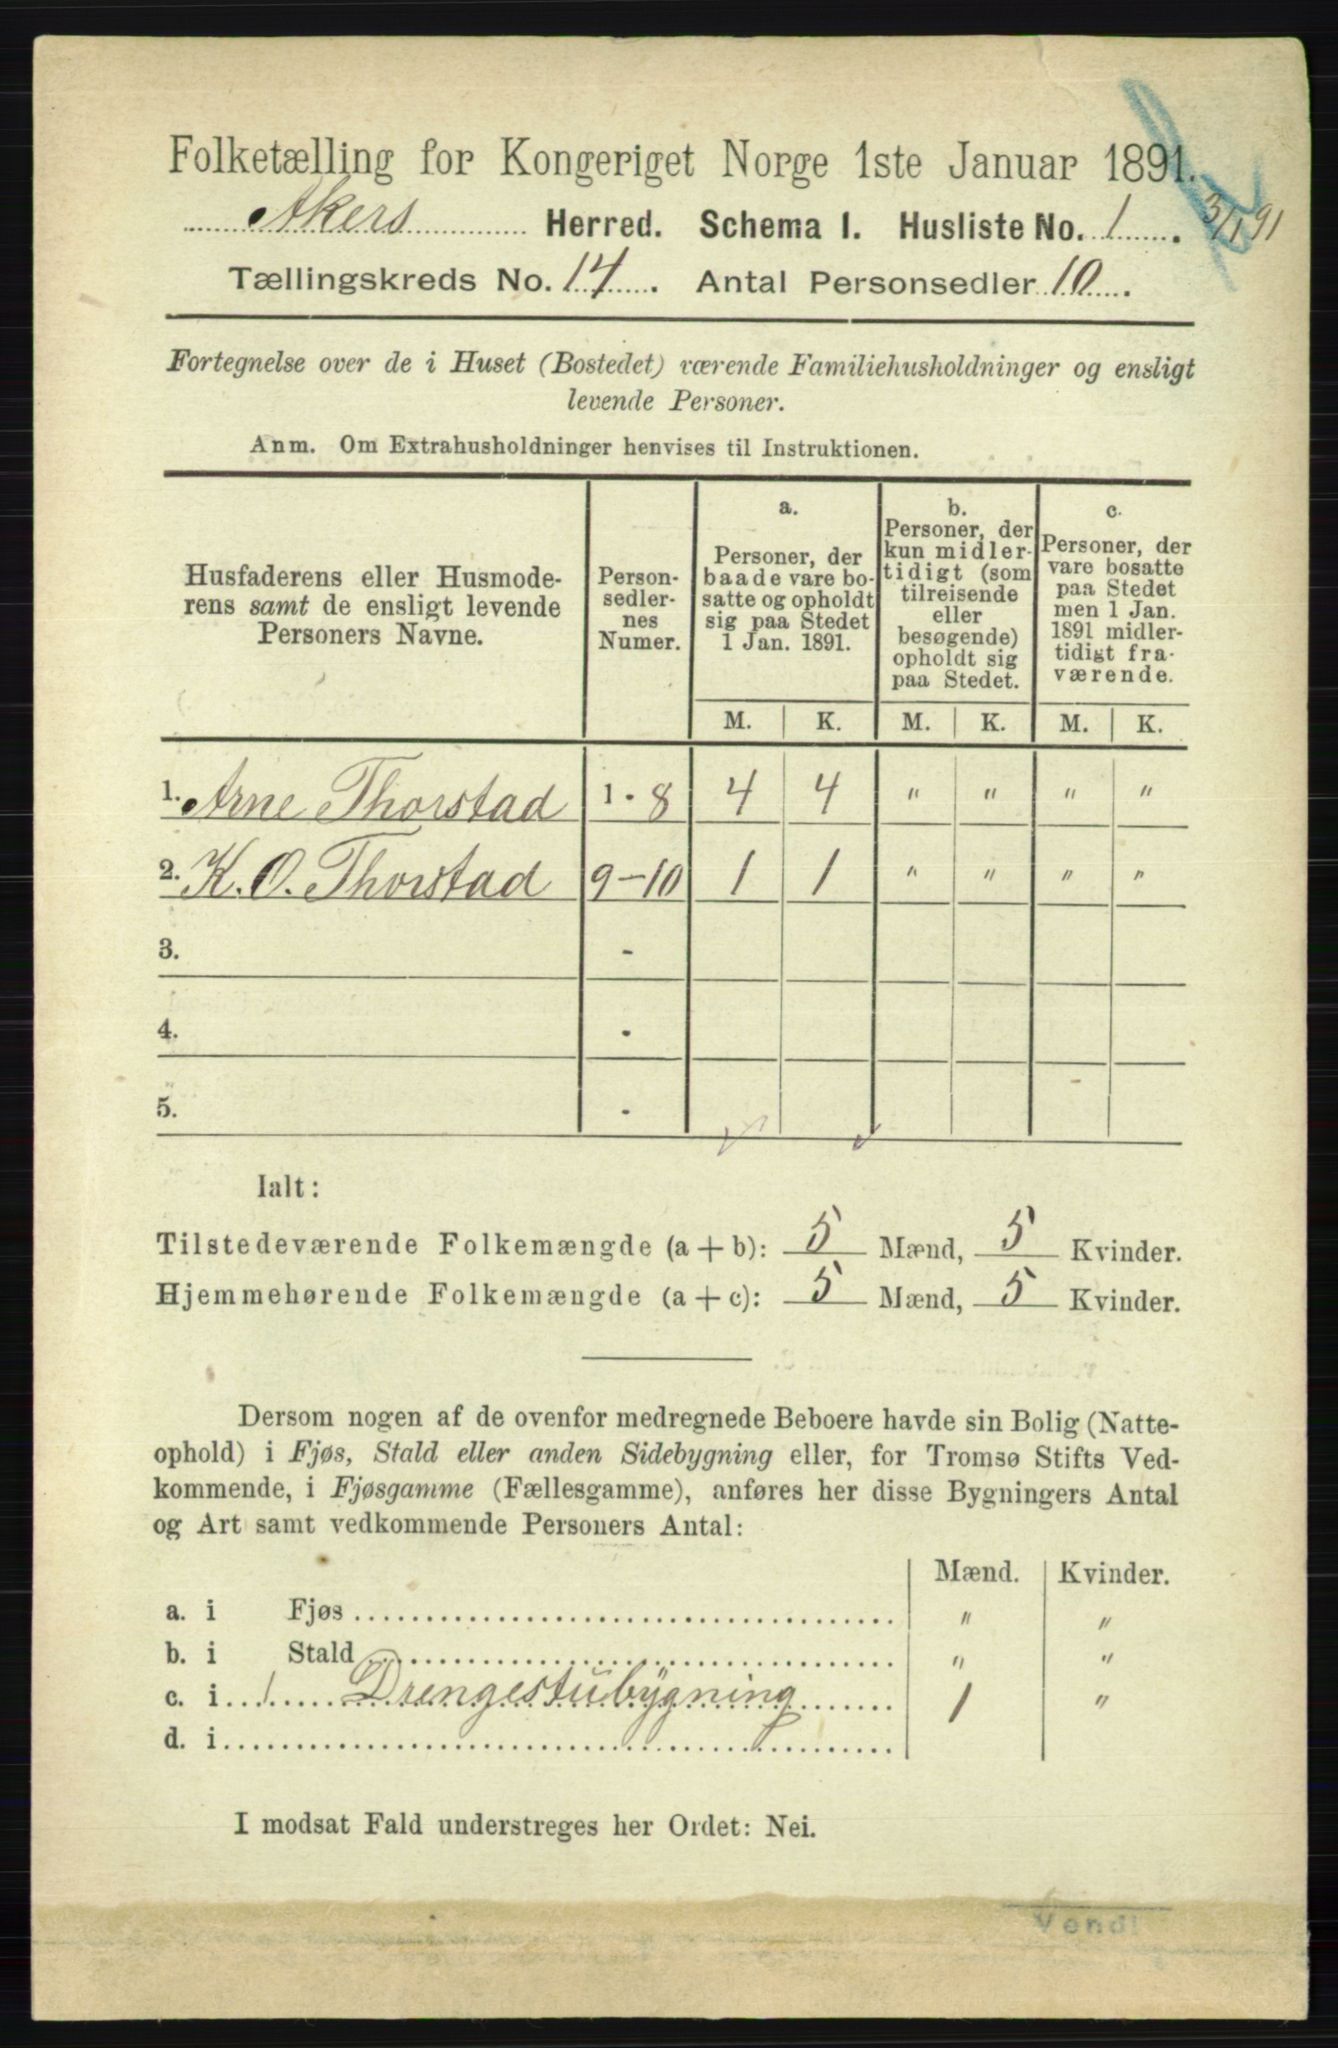 Folketælling for Kongeriget Norge 1ste Januar 1891.
Akers Herred. Schema 1. Husliste No. 1. 3/1 91
Tællingskreds No. 14. Antal Personsedler 10.
Fortegnelse over de i Huset (Bostedet) værende Familiehusholdninger og ensligt
levende Personer.
Anm. Om Extrahusholdninger henvises til Instruktionen.
Husfaderens eller Husmode-
rens samt de ensligt levende
Personers Navne.
Person-
sedler-
nes
Numer.
a.
Personer, der
baade vare bo-
satte og opholdt
sig paa Stedet
1 Jan. 1891.
b.
Personer, der
kun midler-
tidigt (som
tilreisende
eller
besøgende)
opholdt sig
paa Stedet.
c.
Personer, der
vare bosatte
paa Stedet
men 1 Jan.
1891 midler-
tidigt fra-
værende.
M. K. M. K. M. K.
1. Arne Thorstad 1 - 8 4 4 " " " "
2. K. O. Thorstad 9 - 10 1 1 " " " "
3. -
4. -
5. -
Ialt:
Tilstedeværende Folkemængde (a + b): 5 Mænd, 5 Kvinder.
Hjemmehørende Folkemængde (a + c): 5 Mænd, 5 Kvinder.
Dersom nogen af de ovenfor medregnede Beboere havde sin Bolig (Natte-
ophold) i Fjøs, Stald eller anden Sidebygning eller, for Tromsø Stifts Ved-
kommende, i Fjøsgamme (Fællesgamme), anføres her disse Bygningers Antal
og Art samt vedkommende Personers Antal:
Mænd. Kvinder.
a. i Fjøs " "
b. i Stald " "
c. i 1 Drengestubygning 1 "
d. i
I modsat Fald understreges her Ordet: Nei.
Vend!